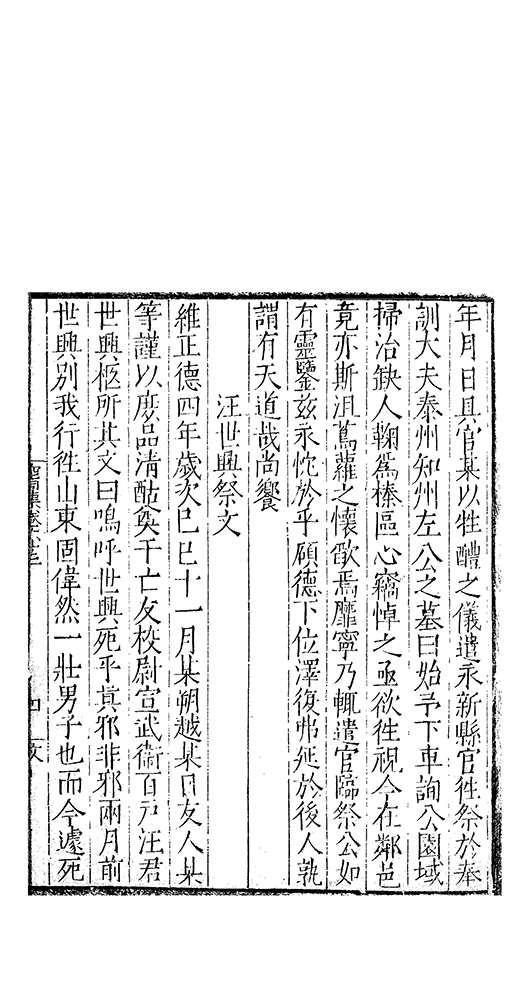 年月日具官某以牲醴之儀遣永新縣官徃祭於奉
訓大夫泰州知州左公之墓曰始予下車詢公園域
掃治缺人鞠爲榛區心竊悼之亟欲徃視今在鄰邑
竟亦斯沮蔦蘿之懷歆焉靡寧乃輒遣官臨祭公如
有靈鑒兹永忱於乎碩德下位澤復弗延於後人孰
謂有天道哉尚饗
汪世興祭文
維正德四年歲次已巳十一月某朔越某日友人某
等謹以庶品清酤奠干亡友校尉宣武衛百戸汪君
世興柩所其文曰嗚呼世興死乎眞邪非邪兩月前
世興别我行徃山東固偉然一壯男子也而今遽死
四
文